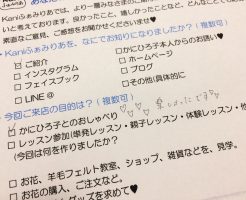 Kaniふぁみりあでは、より一層みなさんに
いと考えております。良かったこと、嬉しかったことなど、どんなことでも
素直なご意見、ご感想をお聞かせくださいませ♥
・Kaniふぁみりあを、なにでお知りになりましたか？（複数可）
□ ご紹介
□ かにひろ子本人からのお誘い♥
□ インスタグラム
□ ホームページ
□ フェイスブック
□ ブログ
□ LINE @
□ その他(具体的に
・今回ご来店の目的は？（複数可）
☑ かにひろ子とのおしゃべり ♡♡♡ 楽しかったです
□ レッスン参加(単発レッスン・親子レッスン・体験レッスン・他
(今回は何を作りましたか？
□ お花、羊毛フェルト教室、ショップ、雑貨などを、見学。
□ お花の購入、ご注文など。
グッズを求めて♥